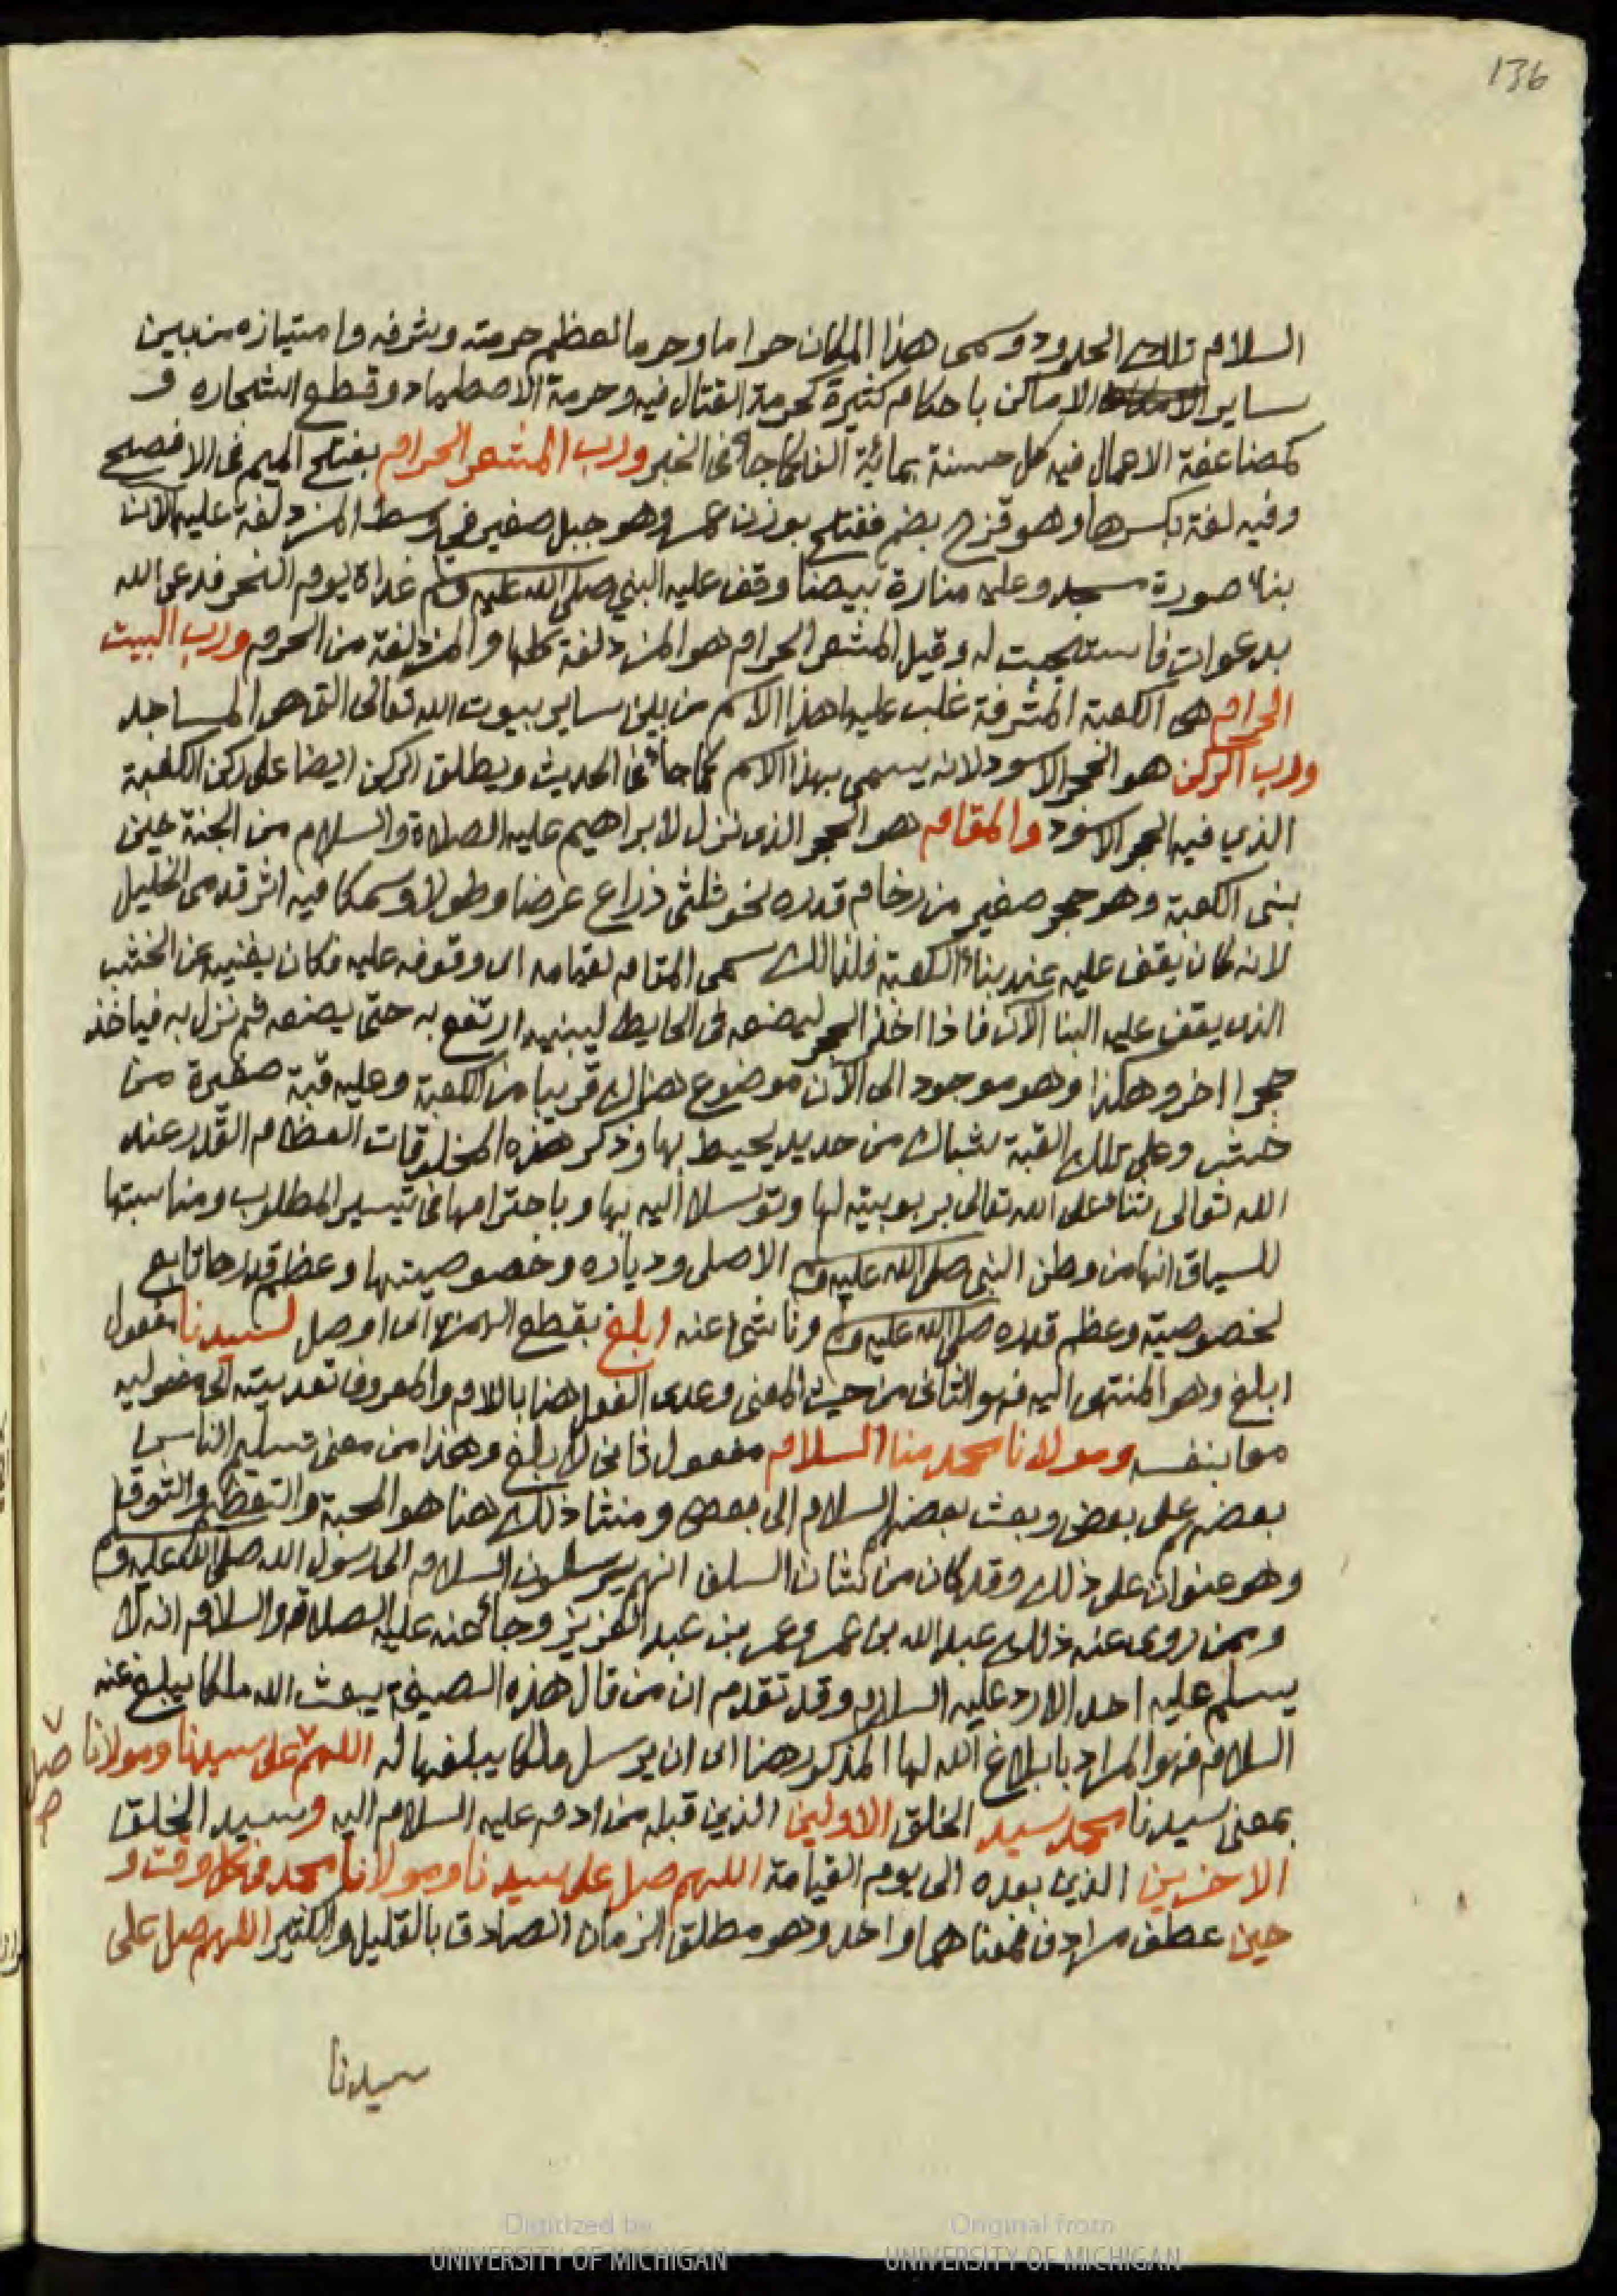 136
السلام تلك الحدود وسمى هذا المكان حراما وحرما لعظم حرمته وشرفه وامتيازه من بين
ساير الاماكن باحكام كثيرة كحرمة القتال فيه وحرمة الاصطياد وقطع اشجاره و
كمضاعفة الاعمال فيه كل حسنة بمائة الف كما جاء فى الخبر ورب المشعر الحرام بفتح الميم فى الافصح
وفيه لغة بكسرها وهو قزح بضم ففتح بوزن عمر وهو جبل صغير فى وسط المزدلفة عليه الآن
بناء صورة مسجد وعليه منارة بيضا وقف عليه النبي صلى الله عليه وسلم غداة يوم النحر فدعى الله
بدعوات فاستجيبت له وقيل المشعر الحرام هو المزدلفة كلها والمزدلفة من الحرم ورب البيت
الحرام هى الكعبة المشرفة غلب عليها هذا الاسم من بين ساير بيوت الله تعالى التى هى المساجد
ورب الركن هو الحجر الاسود لانه يسمى بهذا الاسم كما جاء فى الحديث ويطلق الركن ايضا على ركن الكعبة
الذي فيه الحجر الاسود والمقام هو الحجر الذى نزل لابراهيم عليه الصلاة والسلام من الجنة حين
بنى الكعبة وهو حجر صغير من رخام قدره نحو ثلثى ذراع عرضا وطولا وسمكا فيه اثر قدمى الخليل
لانه كان يقف عليه عند بناء الكعبة فلذلك سمى المقام لقيامه اى وقوفه عليه فكان يغنيه عن الخشب
الذى يقف عليه البنا الآن فاذا اخذ الحجر ليضعه فى الحايط ليبنيه ارتفع به حتى يضعه ثم نزل به فياخذ
حجرا اخر وهكذا وهو موجود الى الآن موضوع هناك قريبا من الكعبة وعليه قبة صغيرة من
خشب وعلى تلك القبة شباك من حديد يحيط بها وذكر هذه المخلوقات العظام القدر عند
الله تعالى ثناء على الله تعالى بربوبيته لها وتوسلا اليه بها وباحترامها فى تيسير المطلوب ومناسبتها
للسياق انها من وطن النبى صلى الله عليه وسلم الاصلى ودياره وخصوصيتها وعظم قدرها تابع
لخصوصيته وعظم قدره صلى الله عليه وسلم وناشئ عنه ابلغ بقطع الهمزة اى اوصل لسيدنا مفعول
ابلغ وهو المنتهى اليه فهو الثانى من حيث المعنى وعدى الفعل هنا باللام والمعروف تعديته الى مفعوليه
معا بنفسه ومولانا محمد منا السلام مفعول ثانى لابلغ وهذا من معنى تسليم الناس
بعضهم على بعض وبعث بعضهم السلام الى بعض ومنشا ذلك هنا هو المحبة والتعظيم والتوق
وهو عنوان على ذلك وقد كان من شان السلف انهم يرسلون السلام الى رسول الله صلى الله عليه وسلم
وممن روى عنه ذلك عبد الله بن عمر وعمر بن عبد العزيز وجاء عنه عليه الصلاة والسلام انه لا
يسلم عليه احد الا رد عليه السلام وقد تقدم ان من قال هذه الصيغة يبعث الله ملكا يبلغ عنه
السلام فهو المراد بابلاغ الله لها المذكور هنا اى ان يرسل ملكا يبلغها له اللهم على سيدنا ومولانا
صل
صح
بمعنى سيدنا محمد سيد الخلق الاولين الذين قبله من ادم عليه السلام اليه وسيد الخلق
الاخرين الذين بعده الى يوم القيامة اللهم صل على سيدنا ومولانا محمد فى كل وقت و
حين عطف مرادف فمعناهما واحد وهو مطلق الزمان الصادق بالقليل والكثير اللهم صل على
سيدنا
Digitized by
UNIVERSITY OF MICHIGAN
Original from
UNIVERSITY OF MICHIGAN